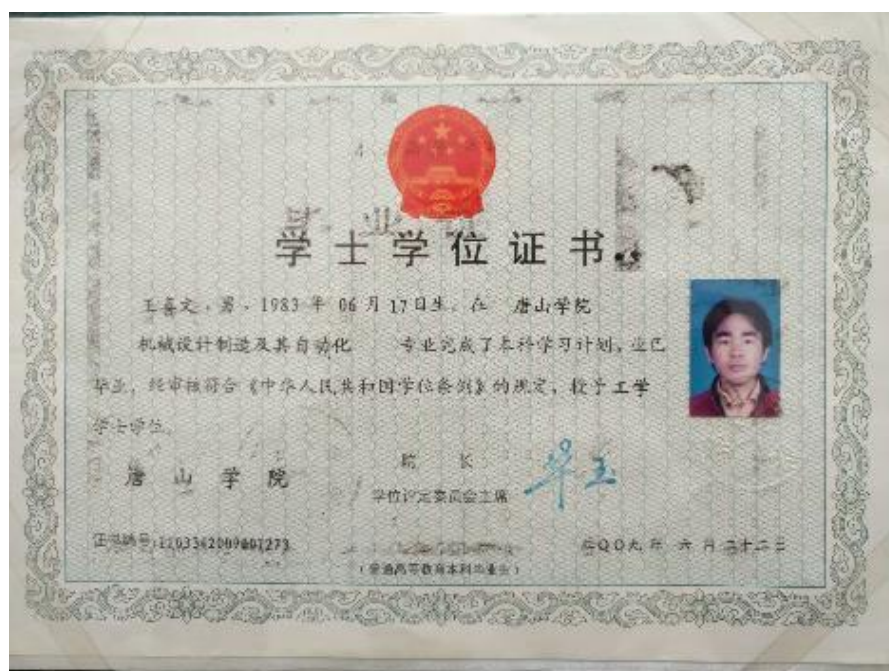 学士学位证书
王喜文，男，1983年06月17日生。在 唐山学院
机械设计制造及其自动化 专业完成了本科学习计划，业已
毕业，经审核符合《中华人民共和国学位条例》的规定，授予工学
学士学位。
唐山学院
院长
学位评定委员会主席
证书编号:
二〇〇九年 六月二十二日
（普通高等教育本科毕业生）